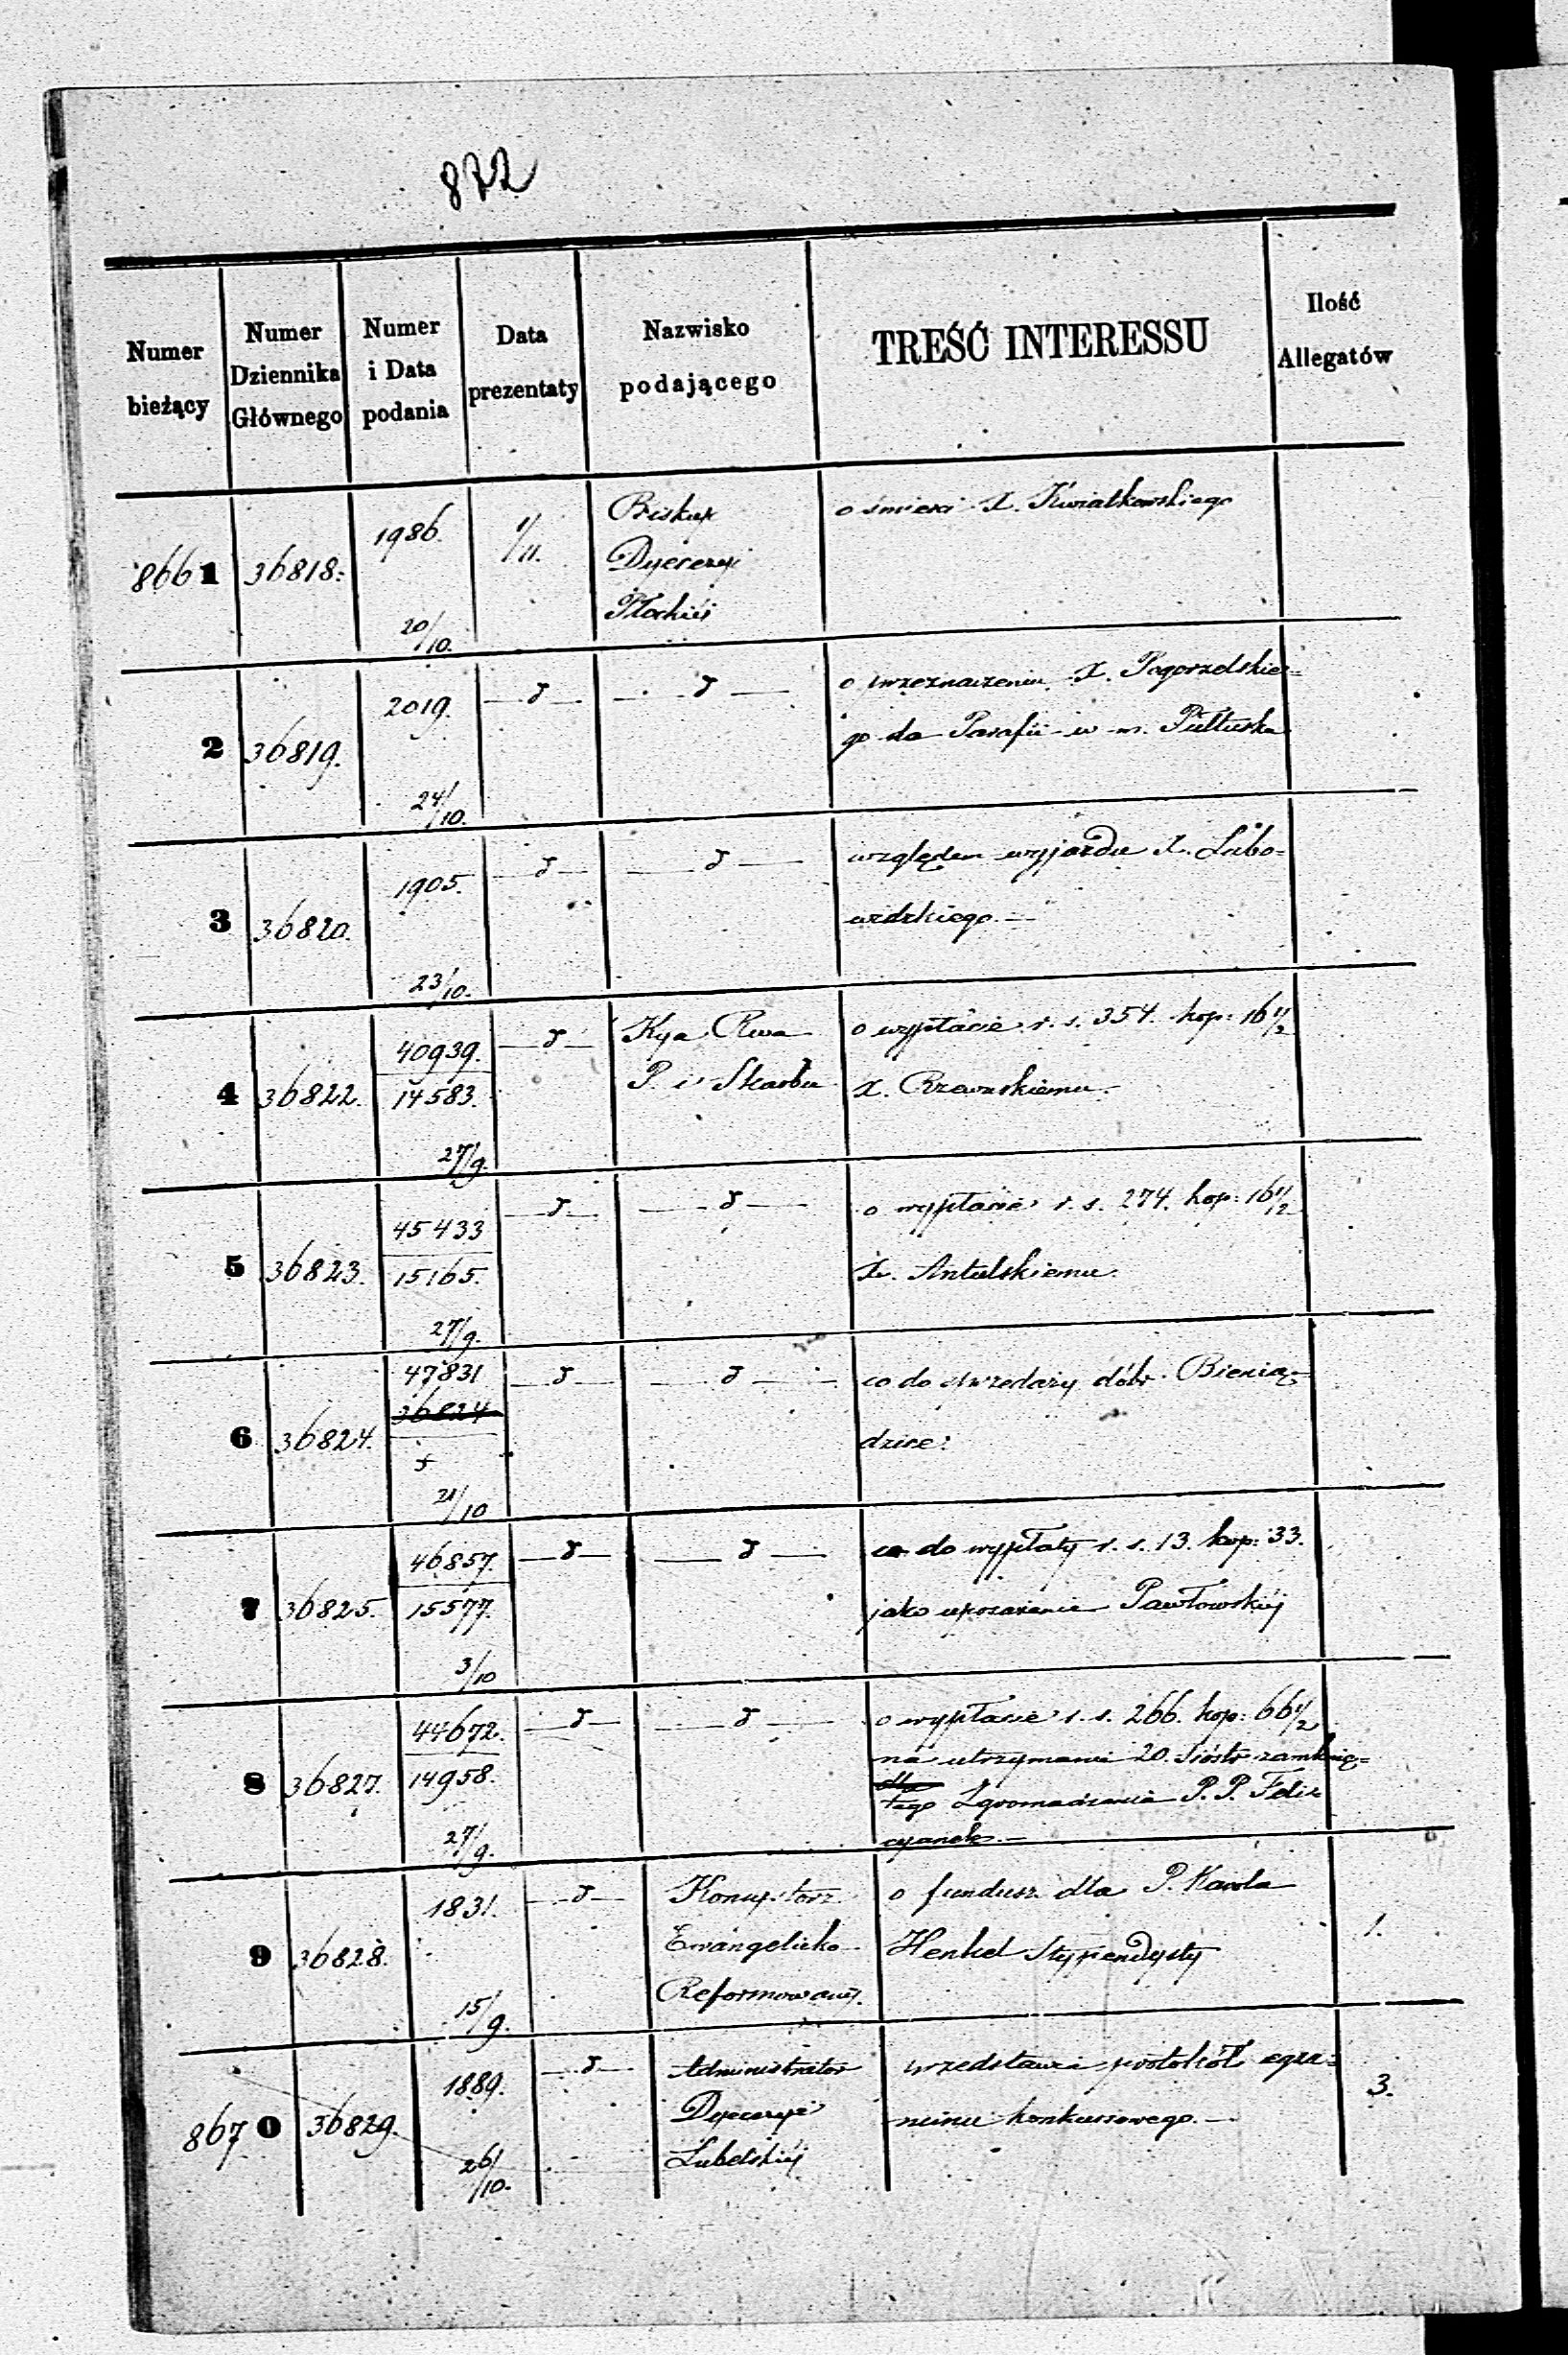 872
Numer bieżący | Numer Dziennika Głównego | Numer i Data podania | Data prezentaty | Nazwisko podającego | TREŚĆ INTERESSU | Ilość Allegatów
8661 | 36818. | 1986. 20/10. | 1/11. | Biskup | o śmierci X. Kwiatkowskiego
Dyecezyi
Płockiéj
2 | 36819. | 2019. 24/10. | — d — | — d — | o przeznaczeniu X. Pogorzelskie=
go do Parafii w m. Pułtusku
3 | 36820. | 1905. 23/10. | — d — | — d — | względem wyjazdu X. Lubo=
widzkiego. —
4 | 36822. | 40939./14583. 27/9. | — d — | Kya Rwa | o wypłacie r. s. 354. kop: 16 1/2
P. i Skarbu | X. Rzewuskiemu. —
5 | 36823. | 45433/15165. 27/9. | — d — | — d — | o wypłacie r. s. 274. kop: 16 1/2
X. Antulskiemu.
6 | 36824. | 47831 36824 / 5 21/10 | — d — | — d — | co do sprzedaży dóbr Bienią=
dzice:
7 | 36825. | 46857./15577. 3/10 | — d — | — d — | co do wypłaty r. s. 13. kop: 33.
jako uposażenie Pawłowskiéj
8 | 36827. | 44672./14958. 27/9. | — d — | — d — | o wypłacie r. s. 266. kop: 66 1/2
na utrzymanie 20. Sióstr zamknię=
tego Zgromadzenia P. P. Feli=
cyanek. —
9 | 36828. | 1831. 15/9. | — d — | Konsystorz | o fundusz dla P. Karola | 1.
Ewangelicko | Henkel Stypendysty
Reformowany.
8670 | 36829. | 1889. 26/10. | — d — | Administrator | przedstawia protokół egza= | 3.
Dyecezyi | minu konkursowego. —
Lubelskiéj